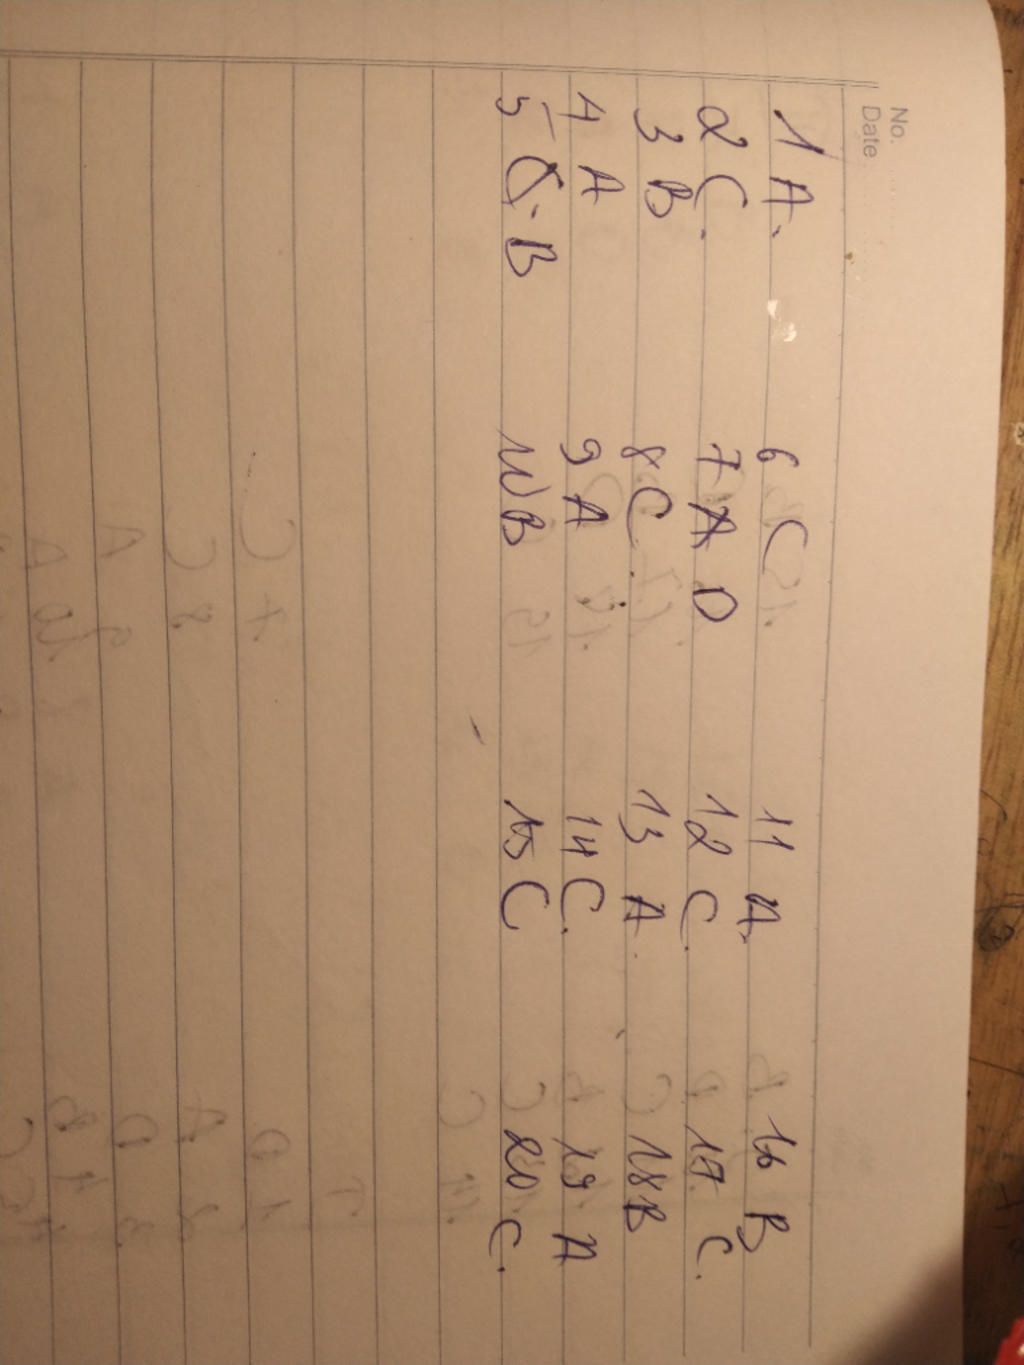 No.
Date
1 A. 6 C 11 A. 16 B
2 C. 7 A D 12 C. 17 C.
3 B 8 C. 13 A. 18 B
4 A 9 A 14 C. 19 A
5 C. B 10 B 15 C 20 C.